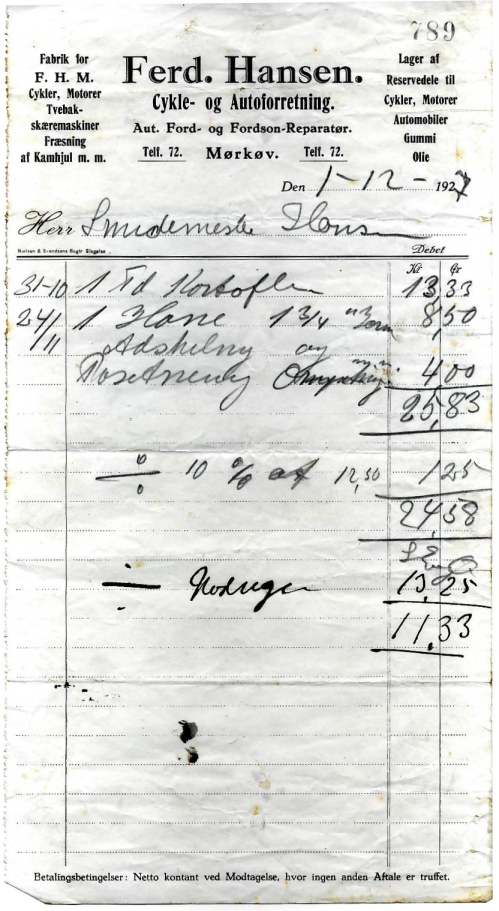 789
Fabrik for
F. H. M.
Cykler, Motorer
Tvebak-
skæremaskiner
Fræsning
af Kamhjul m. m.
Ferd. Hansen.
Cykle- og Autoforretning.
Aut. Ford- og Fordson-Reparatør.
Telf. 72. Mørkøv. Telf. 72.
Lager af
Reservedele til
Cykler, Motorer
Automobiler
Gummi
Olie
Den 1-12- 1927
Herr Smedemester
Nielsen & Svendsens Bogtr Slagelse
Debet
Kr Ør
31-10 1 Td Kartofler 13,33
24/11 1 Hane 1 3/4 " 8,50
Adskilning og
4,00
25,83
÷ 10 % af 12,50 1 25
24,58
÷ Modregn 13,25
11,33
Betalingsbetingelser: Netto kontant ved Modtagelse, hvor ingen anden Aftale er truffet.